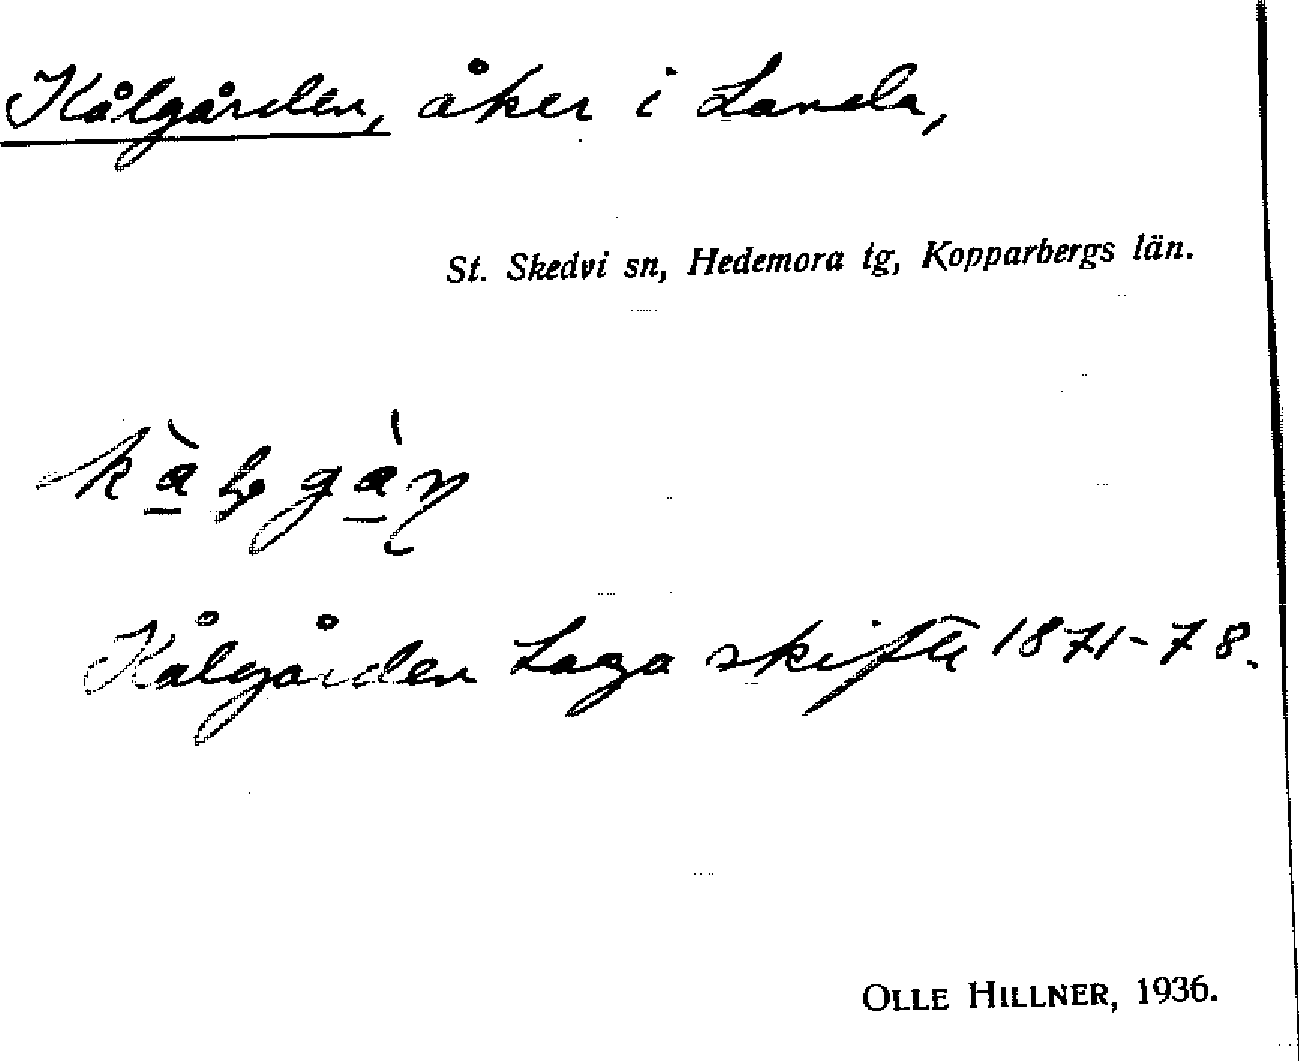 Kålgården, åker i Landa,
St. Skedvi sn, Hedemora tg, Kopparbergs län.
Kålgården Laga skifte 1871-78.
OLLE HILLNER, 1936.